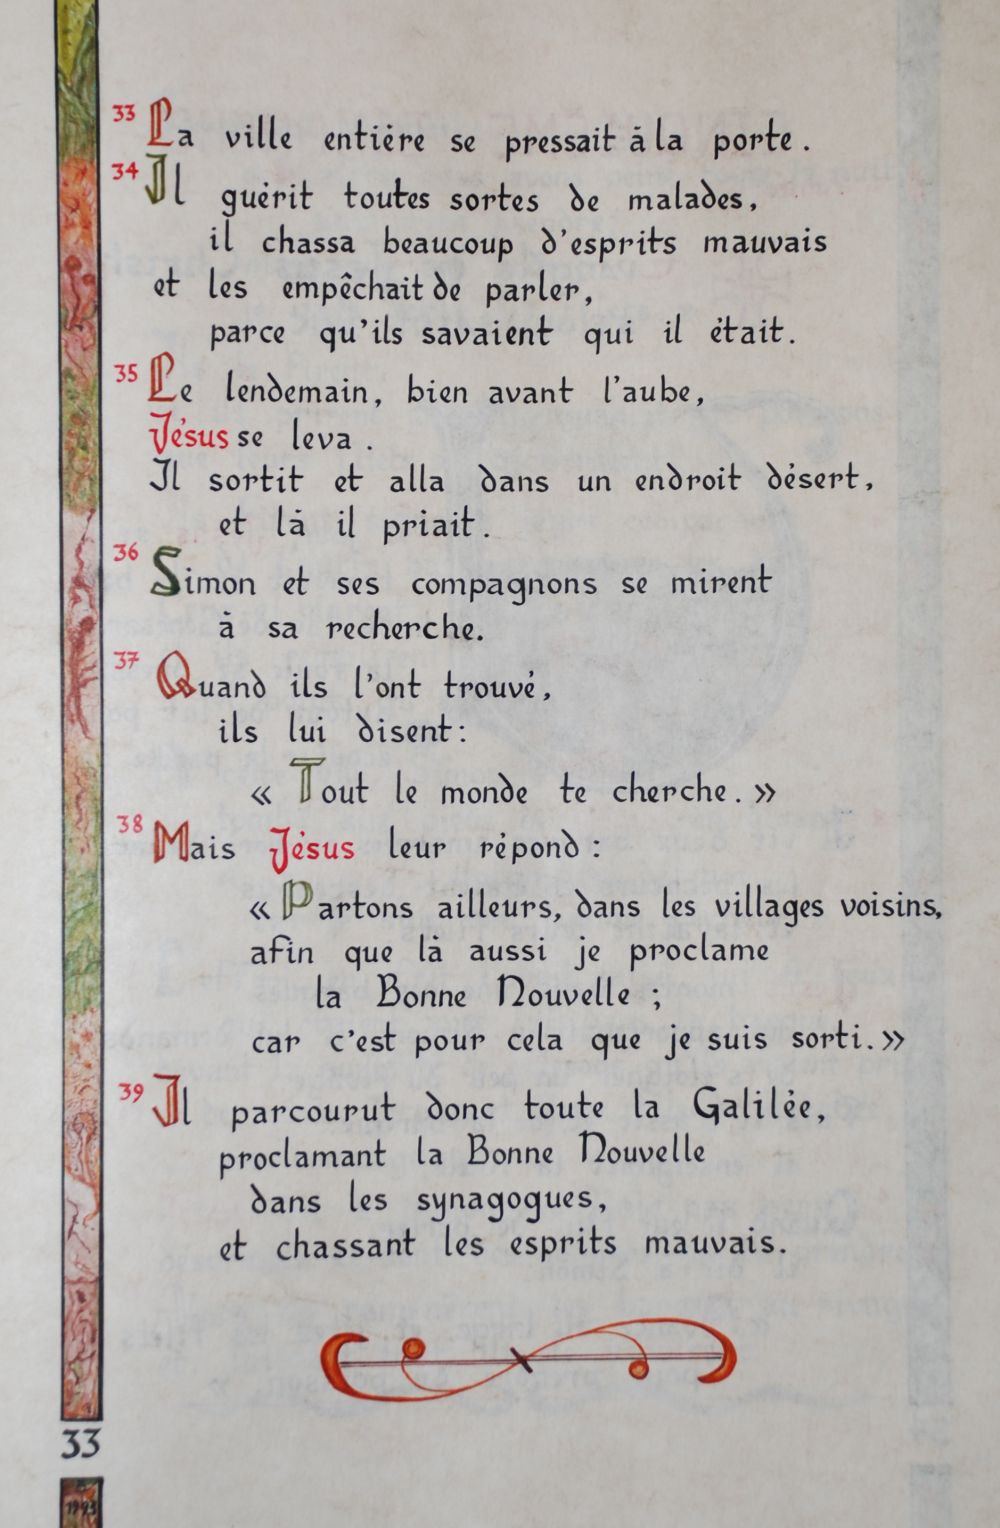 33 La ville entière se pressait à la porte.
34 Il guérit toutes sortes de malades,
il chassa beaucoup d'esprits mauvais
et les empêchait de parler,
parce qu'ils savaient qui il était.
35 Le lendemain, bien avant l'aube,
Jésus se leva.
Il sortit et alla dans un endroit désert,
et là il priait.
36 Simon et ses compagnons se mirent
à sa recherche.
37 Quand ils l'ont trouvé,
ils lui disent:
« Tout le monde te cherche. »
38 Mais Jésus leur répond :
« Partons ailleurs, dans les villages voisins,
afin que là aussi je proclame
la Bonne Nouvelle ;
car c'est pour cela que je suis sorti. »
39 Il parcourut donc toute la Galilée,
proclamant la Bonne Nouvelle
dans les synagogues,
et chassant les esprits mauvais.
33
1993